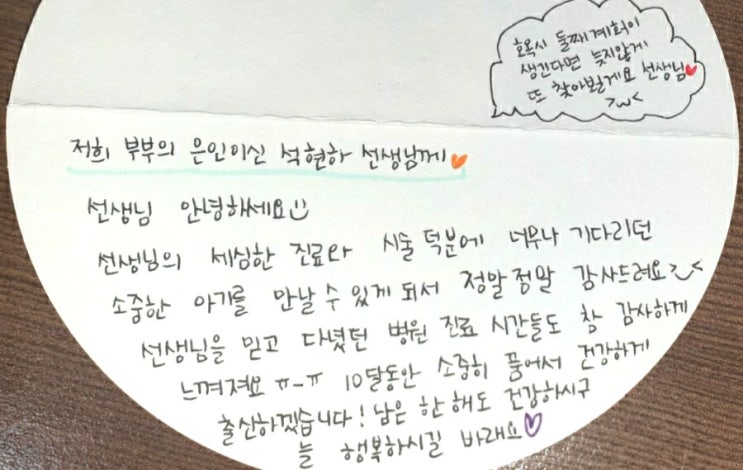 혹시 둘째계획이
생긴다면 늦지않게
또 찾아뵐게요 선생님♥
>ㅅ<
저희 부부의 은인이신 석현하 선생님께♥
선생님 안녕하세요☺
선생님의 세심한 진료와 시술 덕분에 너무나 기다리던
소중한 아기를 만날 수 있게 되서 정말정말 감사드려요>_<
선생님을 믿고 다녔던 병원 진료 시간들도 참 감사하게
느껴져요 ㅠ-ㅠ 10달동안 소중히 품어서 건강하게
출산하겠습니다! 남은 한 해도 건강하시구
늘 행복하시길 바래요♡